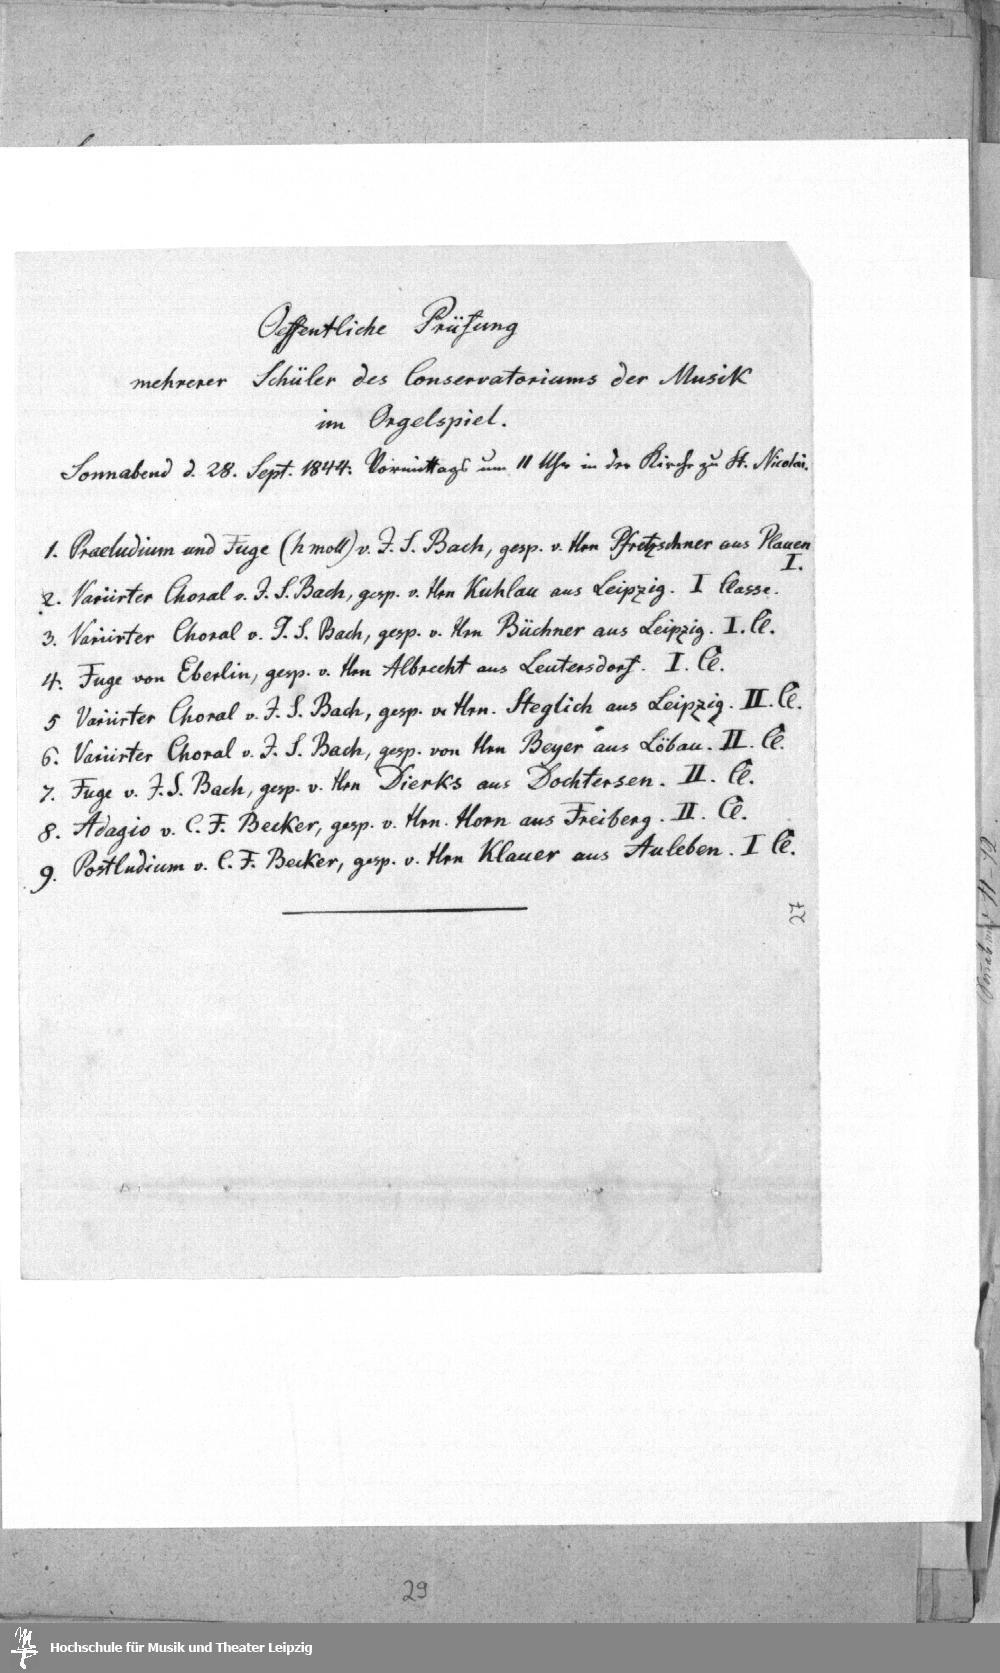 Oeffentliche Prüfung
mehrerer Schüler des Conservatoriums der Musik
im Orgelspiel.
Sonnabend d. 28. Sept. 1844. Vormittags um 11 Uhr in der Kirche zu St. Nicolai.
1. Praeludium und Fuge (h moll) v. J. S. Bach, gesp. v. Hrn Pfretzschner aus Plauen
I.
2. Variirter Choral v. J. S. Bach, gesp. v. Hrn Kuhlau aus Leipzig. I Classe.
3. Variirter Choral v. J. S. Bach, gesp. v. Hrn Büchner aus Leipzig. I. Cl.
4. Fuge von Eberlin, gesp. v. Hrn Albrecht aus Leutersdorf. I. Cl.
5 Variirter Choral v. J. S. Bach, gesp. v. Hrn. Steglich aus Leipzig. II. Cl.
6. Variirter Choral v. J. S. Bach, gesp. von Hrn Beyer aus Löbau. II. Cl.
7. Fuge v. J. S. Bach, gesp. v. Hrn Dierks aus Dochtersen. II. Cl.
8. Adagio v. C. F. Becker, gesp. v. Hrn. Horn aus Freiberg. II. Cl.
9. Postludium v. C. F. Becker, gesp. v. Hrn Klauer aus Auleben. I Cl.
27
29
Hochschule für Musik und Theater Leipzig